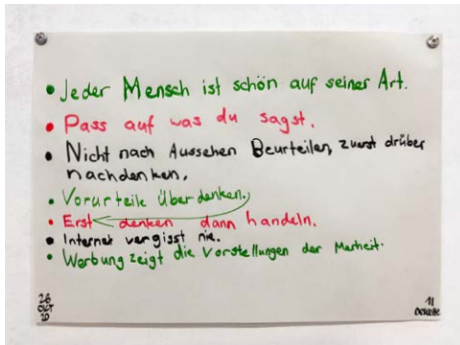 • Jeder Mensch ist schön auf seiner Art.
• Pass auf was du sagst.
• Nicht nach Aussehen Beurteilen, zuerst drüber
nachdenken.
• Vorurteile überdenken.
• Erst denken dann handeln.
• Internet vergisst nie.
• Werbung zeigt die Vorstellungen der
26
OKT
20
11